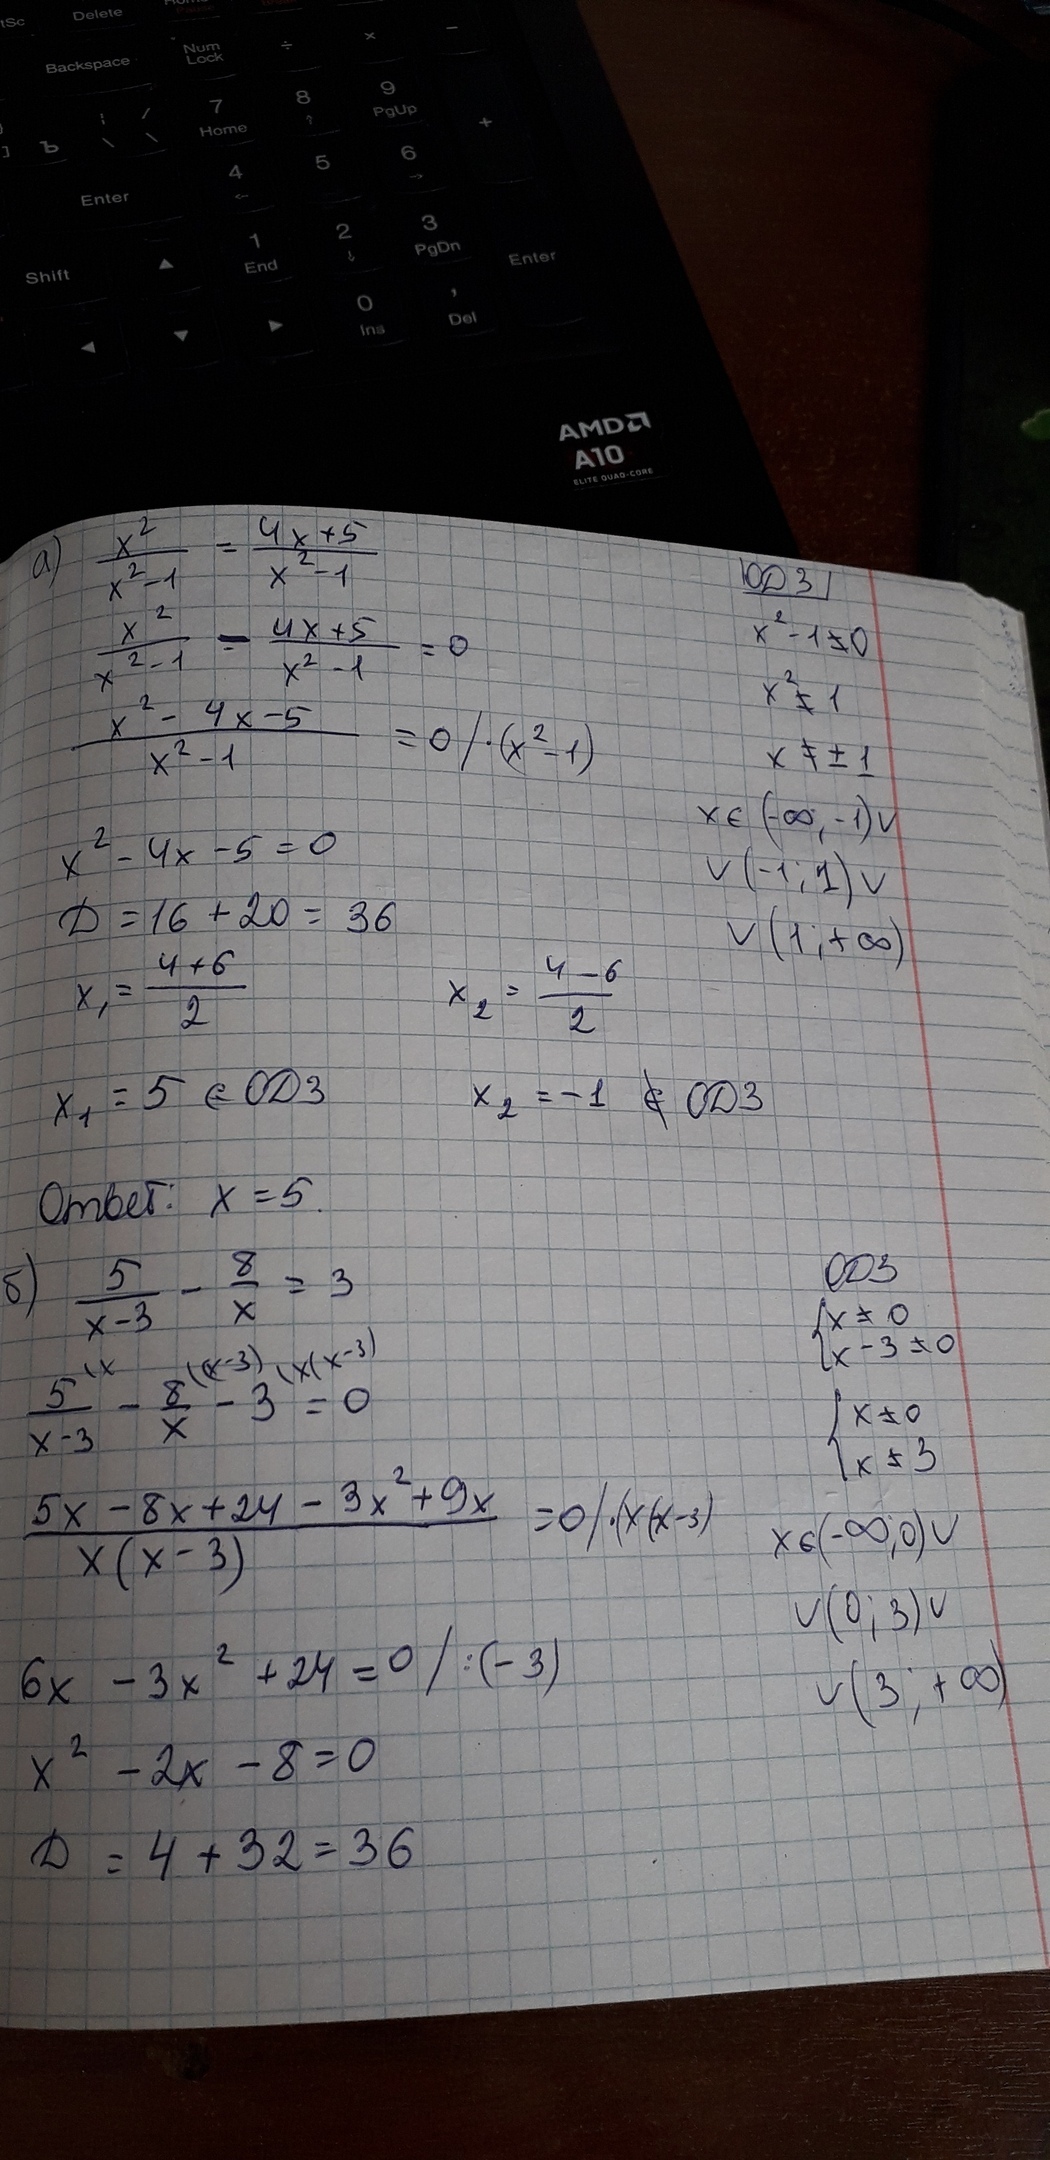 tSc Delete
Backspace Num Lock ÷ × −
7 Home 8 9 PgUp +
] Ъ ; \ / \
Enter 4 ← 5 6 →
Shift 1 End 2 ↓ 3 PgDn Enter
0 Ins , Del
AMD
A10
ELITE QUAD-CORE
а) x²/(x²-1) = (4x+5)/(x²-1)
x²/(x²-1) - (4x+5)/(x²-1) = 0
(x²-4x-5)/(x²-1) = 0 / ·(x²-1)
x²-4x-5=0
D=16+20=36
x₁=(4+6)/2 x₂=(4-6)/2
x₁=5 ∈ ОДЗ x₂=-1 ∉ ОДЗ
Ответ: x=5.
ОДЗ
x²-1≠0
x²≠1
x≠±1
x∈(-∞;-1)∪
∪(-1;1)∪
∪(1;+∞)
б) 5/(x-3) - 8/x = 3
5/(x-3) (x - 8/x ((x-3) - 3 (x(x-3) = 0
(5x-8x+24-3x²+9x)/(x(x-3)) =0/·(x(x-3)
6x-3x²+24=0/:(-3)
x²-2x-8=0
D=4+32=36
ОДЗ
{x≠0
x-3≠0
{x≠0
x≠3
x∈(-∞;0)∪
∪(0;3)∪
∪(3;+∞)